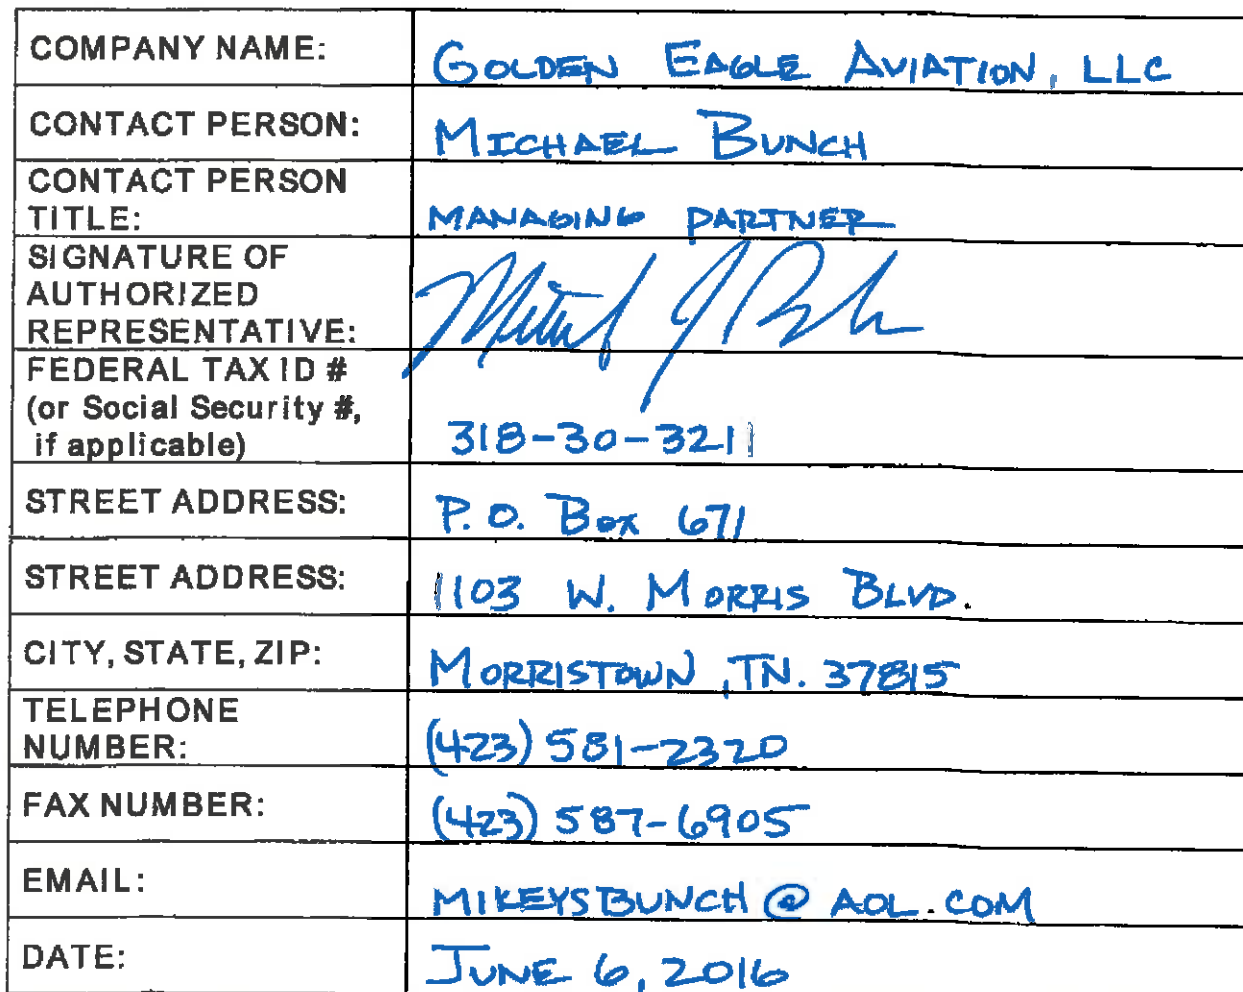 COMPANY NAME: GOLDEN EAGLE AVIATION, LLC
CONTACT PERSON: MICHAEL BUNCH
CONTACT PERSON
TITLE: MANAGING PARTNER
SIGNATURE OF
AUTHORIZED
REPRESENTATIVE:
FEDERAL TAX ID #
(or Social Security #,
if applicable) 318-30-3211
STREET ADDRESS: P.O. Box 671
STREET ADDRESS: 1103 W. MORRIS BLVD.
CITY, STATE, ZIP: MORRISTOWN, TN. 37815
TELEPHONE
NUMBER: (423) 581-2320
FAX NUMBER: (423) 587-6905
EMAIL: MIKEYSBUNCH@AOL.COM
DATE: JUNE 6, 2016